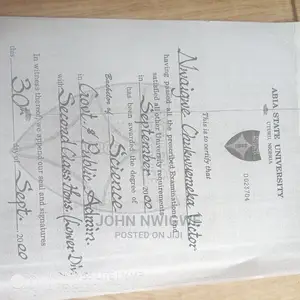 ABIA STATE UNIVERSITY
UTURU, NIGERIA
D023704
This is to certify that
Nwaigwe Chukwuemeka Victor
having passed all the prescribed Examinations and
satisfied all other University requirements
in September 2000
has been awarded the degree of
Bachelor of Science
in Govt. & Public Admin.
with Second Class Hons (Lower Div)
In witness thereof, we append our seal and signatures
this 30th day of Sept. 2000
JOHN NWIGS
POSTED ON JIJI